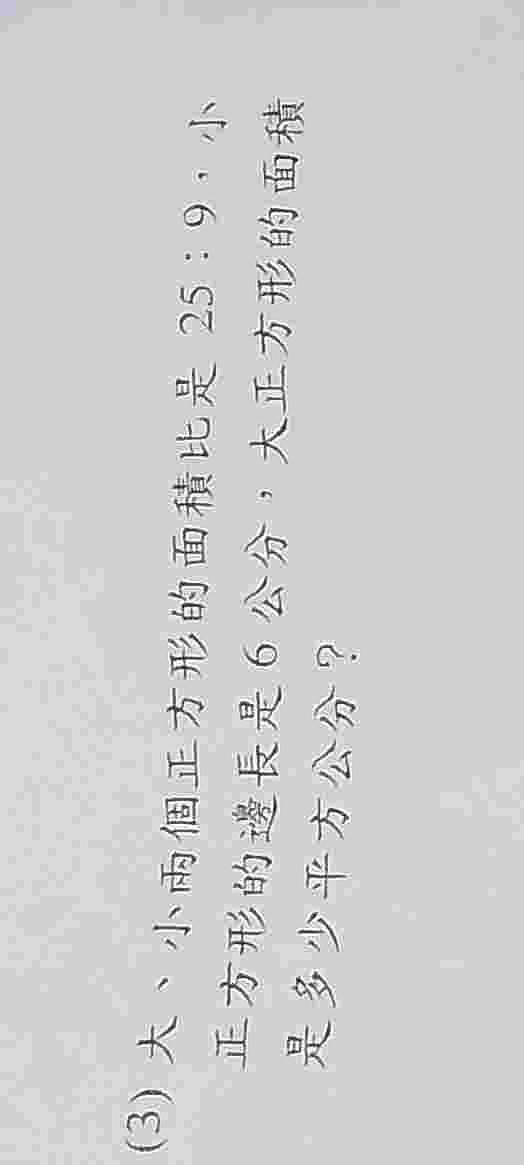 (3) 大、小兩個正方形的面積比是 25:9,小
正方形的邊長是 6 公分,大正方形的面積
是多少平方公分?